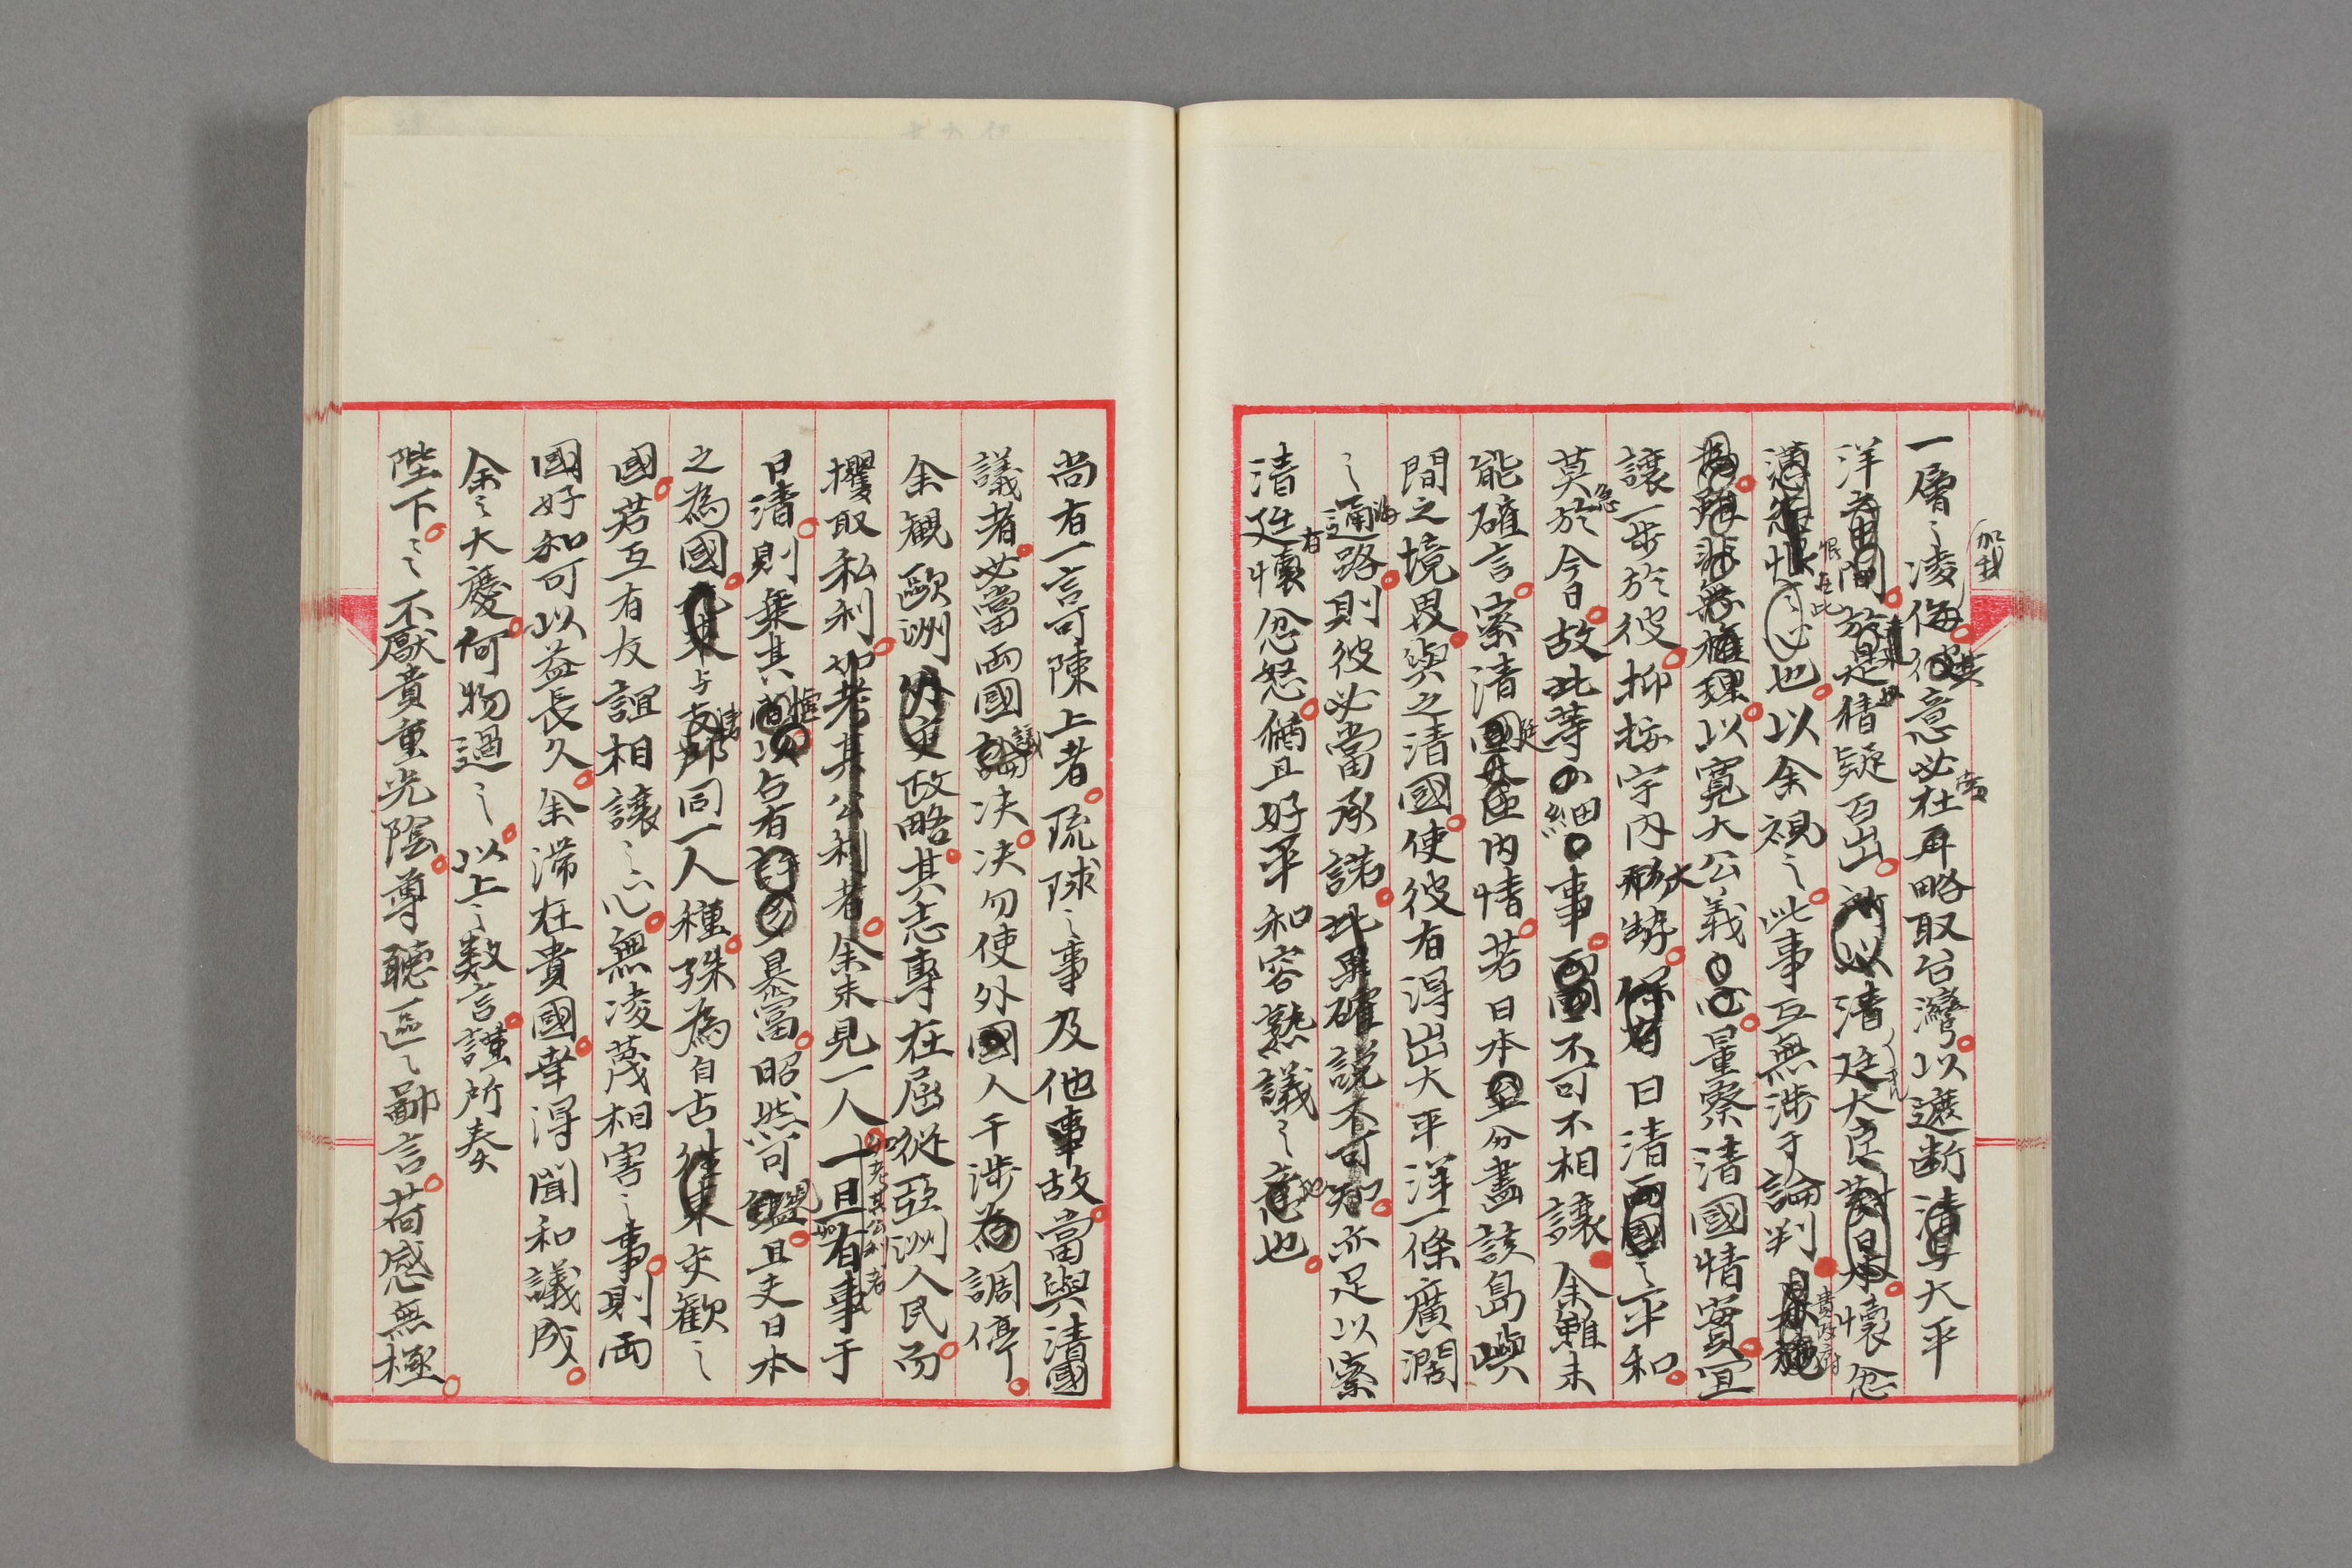 加我
一層之凌侮其意必在再略取台灣以遮断清与大平
洋於是猜疑百出清廷大臣懷忿
恨在此也以余視之此事互無渉于論判貴政府
以寛大公義量察清國情實宜
讓一歩於彼抑按宇内大勢日清之平和
莫急於今日故此等細事不可不相讓余雖未
能確言察清廷内情若日本分畫該島嶼
間之境界與之清國使彼有得出大平洋一條廣濶
之通路則彼必當承諾亦足以察
清廷有懷忿怒猶且好平和容熟議之意也
尚有一言可陳上者琉球之事及他事故當與清國
議者必當両國議决决勿使外國人干渉為調停
余観歐洲政略其志專在屈從亞洲人民而
攫取私利如考其公利者余未見一人一旦有事于
日清則乗其占有暴富昭然可見且夫日本
之為國与清同一人種殊為自古往來交歡之
國若互有友誼相讓之心無凌蔑相害之事則両
國好和可以益長久余滞在貴國幸得聞和議成
余之大慶何物過之以上之数言謹所奏
陛下之不厭貴重光陰尊聽區之鄙言荷感無極